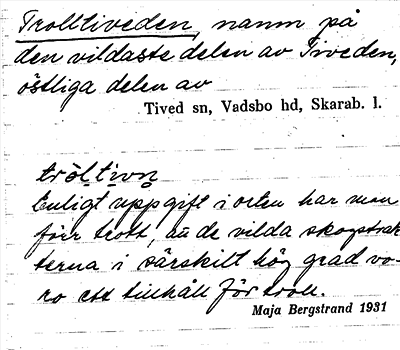 Trolltiveden, namn på
den vildaste delen av Tiveden,
östliga delen av
Tived sn, Vadsbo hd, Skarab. l.
tròltivn
Enligt uppgift i orten har man
förr trott, att de vilda skogstrak-
terna i särskilt hög grad vo-
ro ett tillhåll för troll.
Maja Bergstrand 1931